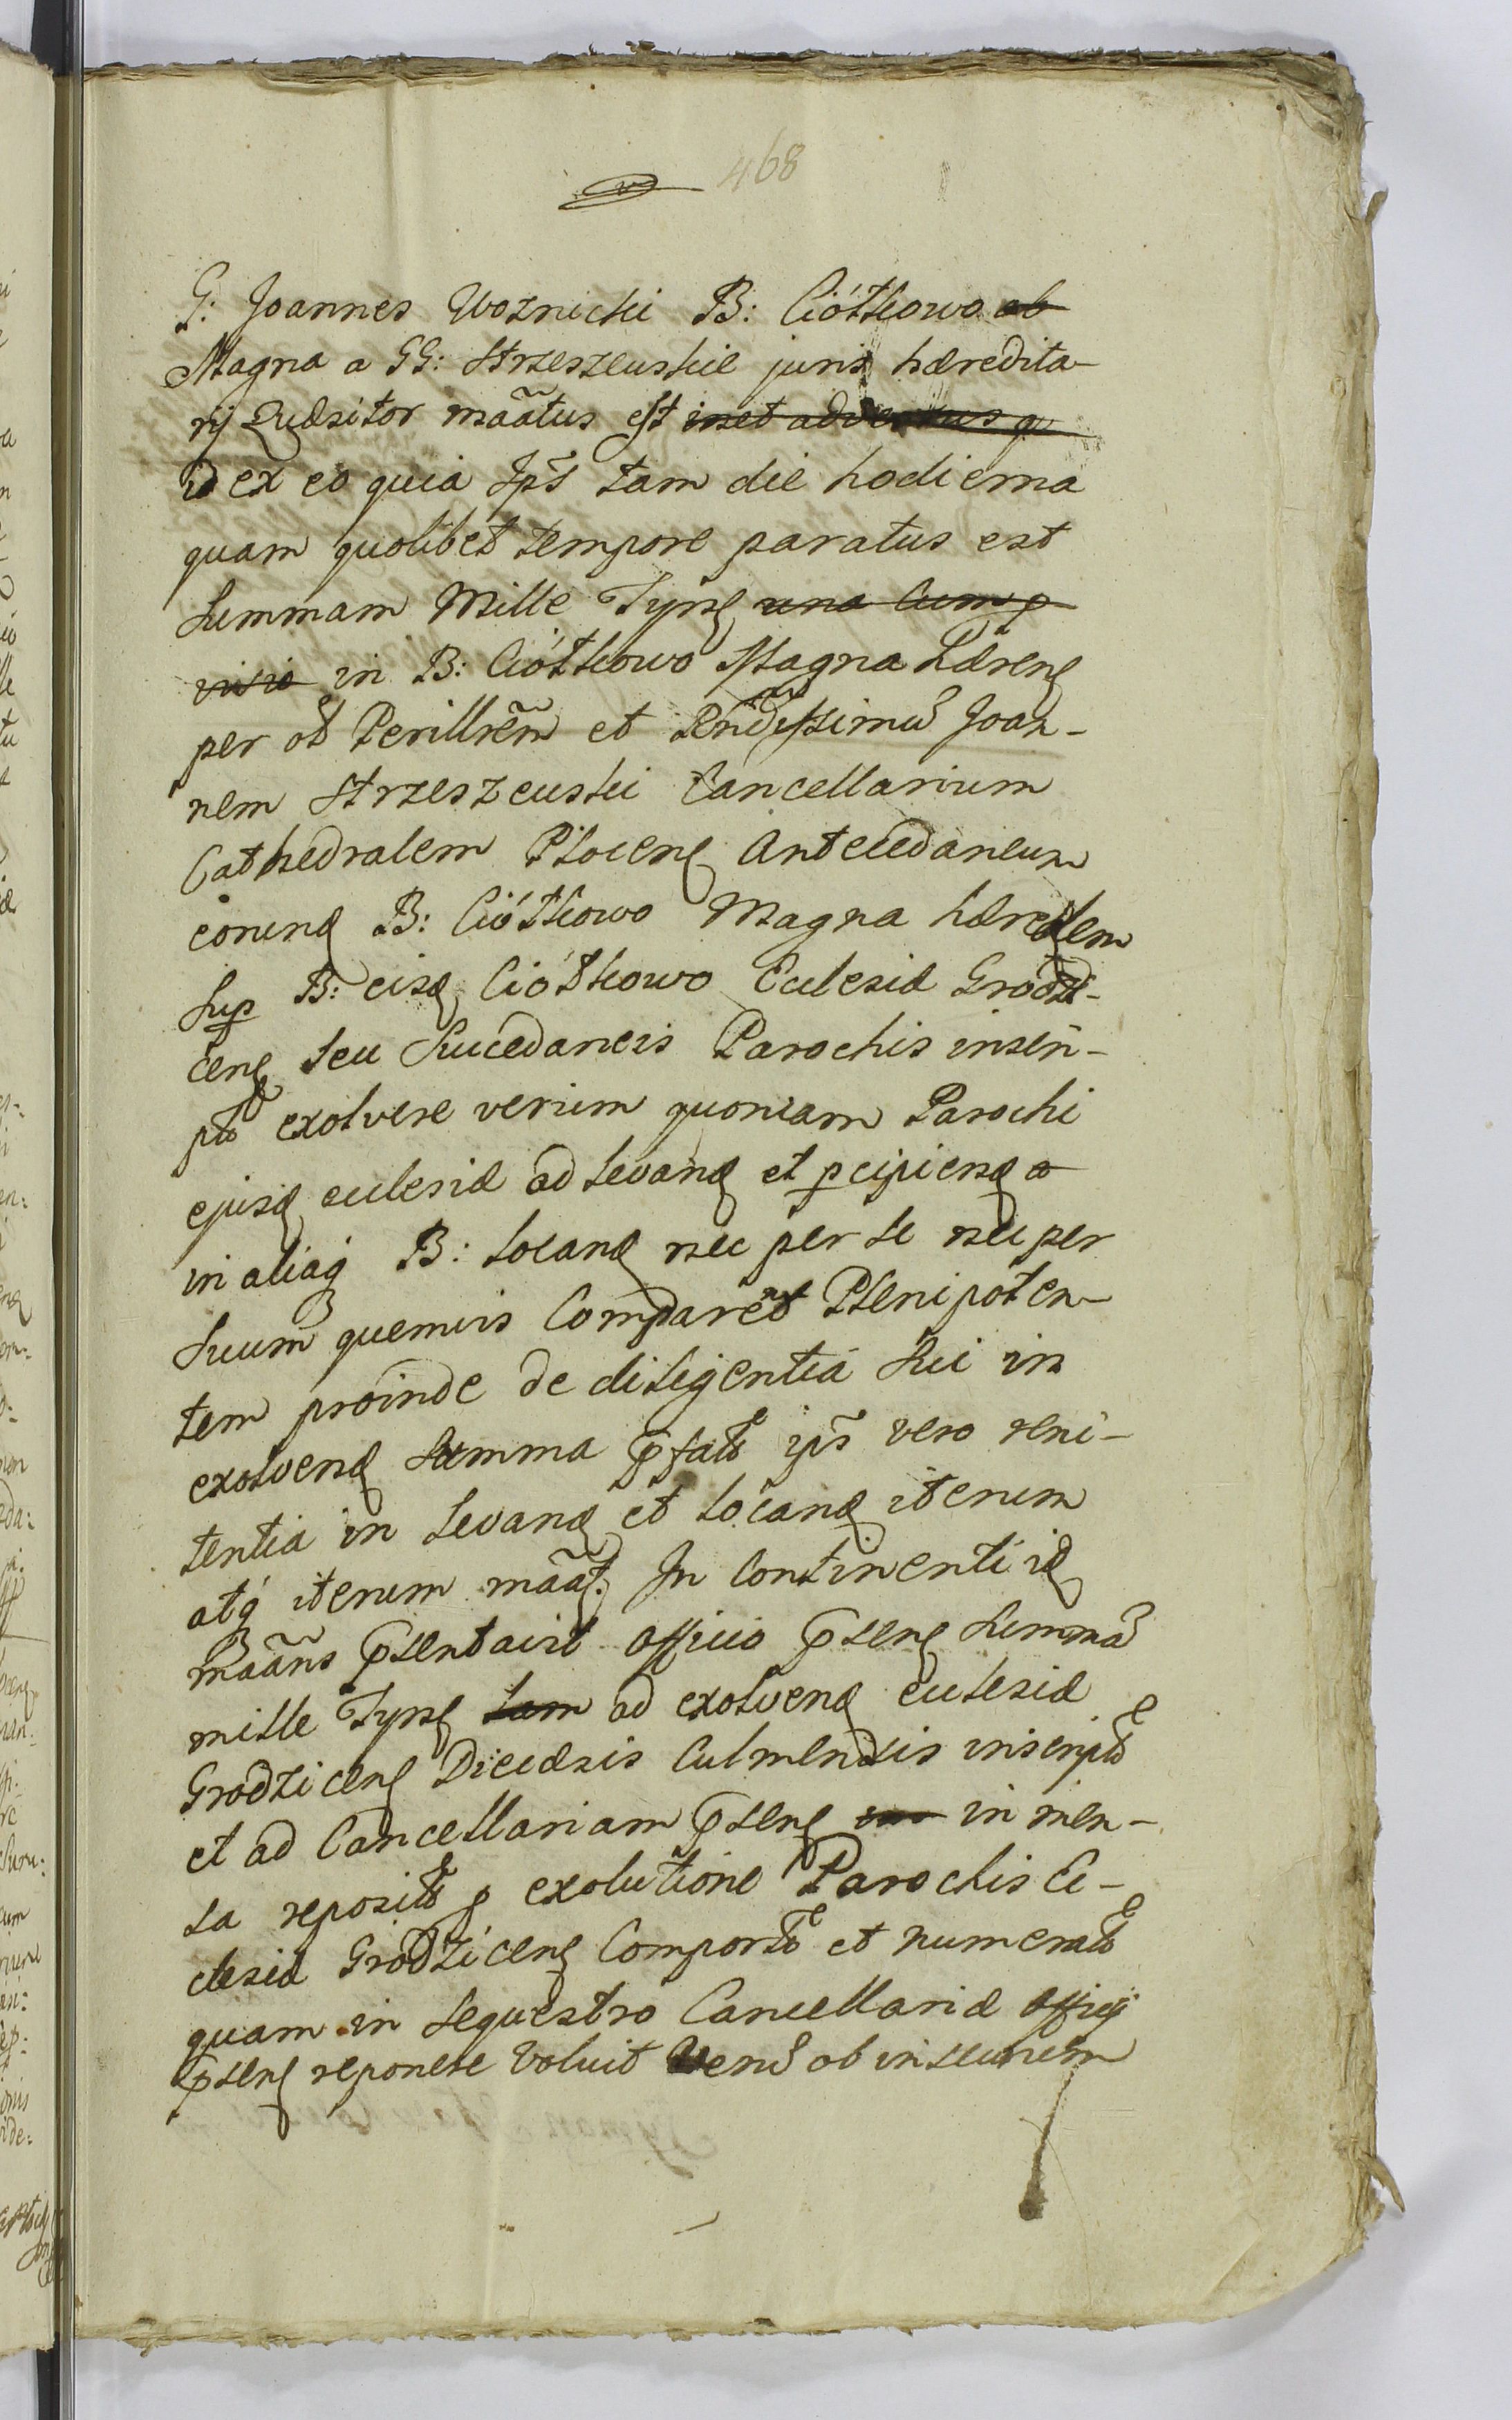 468
G: Joannes Woznicki B: Ciótkowo ab
Magna a GG: Strzeszeuskie juris hæredita-
rij Quæsitor mãatus est
id ex eo quia Ips̃ tam die hodierna
quam quolibet tempore paratus est
Summam Mille Tynf una cum p
in B: Ciótkowo Magna hæren
per ol Perillrẽm et Rñdissimũ Joan-
nem Strzeszeuski Cancellarium
Cathedralem Plocen Antecedaneum
eorund B: Ciótkowo Magna hæredem
Sup B: eisd Ciótkowo Eclesiæ Grodzi-
cen seu Succedaneis Parochis inscri-
pta exolvere verum quoniam Parochi
ejusd eclesiæ ad levand et pcipiend a
in aliaq B: locand nec per se nec per
Suum quemvis Comparẽt Plenipoten-
tem proinde de diligentia Sui in
exolvend Summa pfata ips̃ vero reni-
tentia in levand et locand iterum
atq iterum mãat. In Continenti id
mãans psentavit officio psen Summã
mille Tynf tam ad exolvend eclesiæ
Grodzicen Diecæsis Culmensis inscripta
et ad Cancellariam psen in men-
sa reposita p exolutione Parochis Ec-
clesiæ Grodzicen Comporta et numerata
quam in sequestro Cancellariæ officij
psen reponere Voluit Verũ ob insecurem